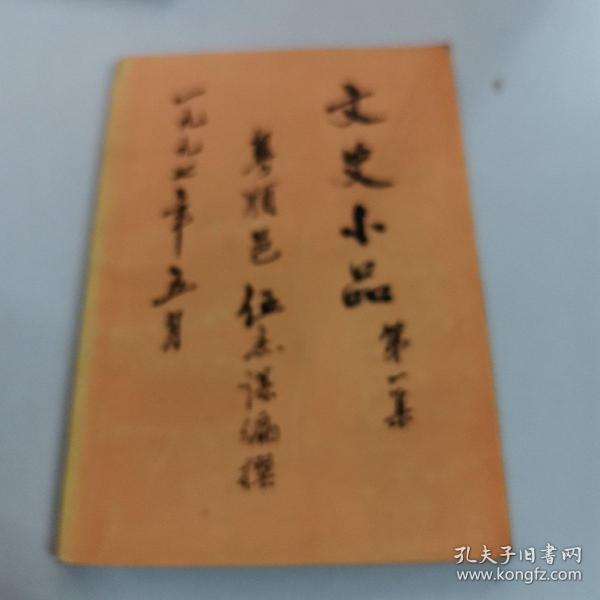 文史小品
第一集
粤顺邑 伍志谋编撰
一九九七年五月
孔夫子旧书网
www.kongfz.com